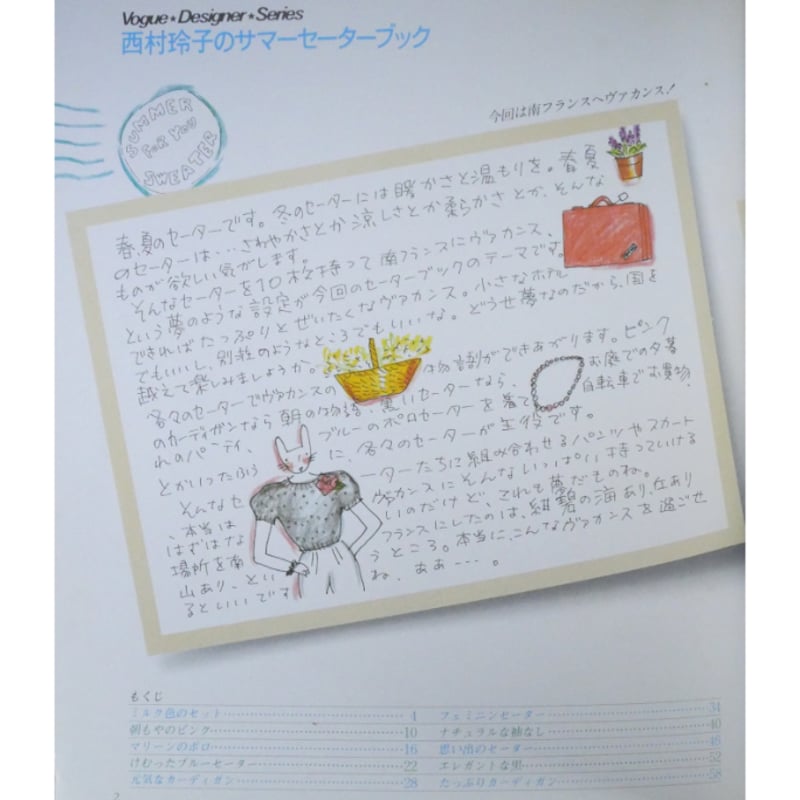 Vogue★Designer★Series
西村玲子のサマーセーターブック
SUMMER
FOR YOU
SWEATER
今回は南フランスへヴァカンス!
春夏のセーターです。冬のセーターには暖かさと温もりを。春夏
のセーターは…さわやかさとか涼しさとか柔らかさとか、そんな
ものが欲しい気がします。
そんなセーターを10枚持って南フランスにヴァカンス、
という夢のような設定が今回のセーターブックのテーマです。
できればたっぷりとぜいたくなヴァカンス。小さなホテル
でもいいし、別荘のようなところでもいいな。どうせ夢なのだから、国を
越えて楽しみましょうか。
各々のセーターでヴァカンスの物語ができあがります。ピンク
のカーディガンなら朝の物語、黒いセーターなら、お庭での夕暮
れのパーティ、ブルーのポロセーターを着て自転車でお買物、
とかいったふうに、各々のセーターが主役です。
そんなセーターたちに組み合わせるパンツやスカート
、本当はヴァカンスにそんないっぱい持っていける
はずはないのだけど、これも夢だものね。
場所を南フランスにしたのは、紺碧の海あり、丘あり
山あり、というところ。本当に、こんなヴァカンスを過ごせ
るといいですね、ああ……。
もくじ
ミルク色のセット 4
朝もやのピンク 10
マリーンのポロ 16
けむったブルーセーター 22
元気なカーディガン 28
フェミニンセーター 34
ナチュラルな袖なし 40
思い出のセーター 46
エレガントな黒 52
たっぷりカーディガン 58
2